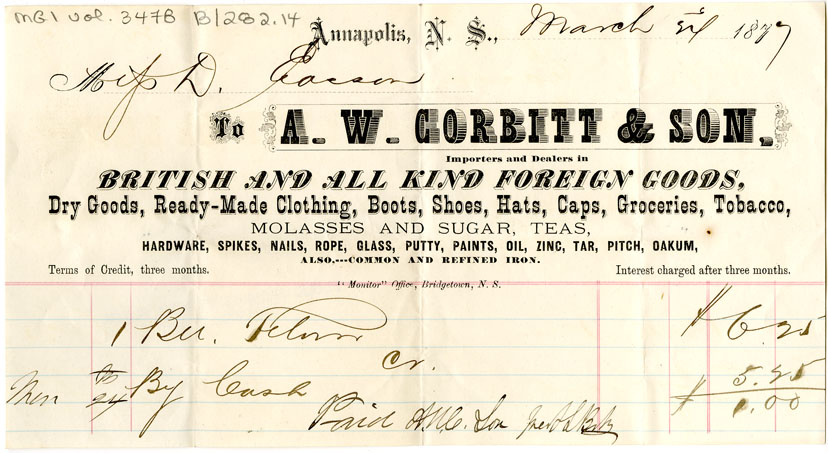 MG1 vol. 3478 B/282.14
Annapolis, N. S., March 24 1877
Miss D. Easson
To A. W. CORBITT & SON,
Importers and Dealers in
BRITISH AND ALL KIND FOREIGN GOODS,
Dry Goods, Ready-Made Clothing, Boots, Shoes, Hats, Caps, Groceries, Tobacco,
MOLASSES AND SUGAR, TEAS,
HARDWARE, SPIKES, NAILS, ROPE, GLASS, PUTTY, PAINTS, OIL, ZINC, TAR, PITCH, OAKUM,
ALSO,---COMMON AND REFINED IRON.
Terms of Credit, three months. Interest charged after three months.
"Monitor" Office, Bridgetown, N. S.
1 Bbl. Flour $6.25
Cr.
24 By Cash 5.25
$1.00
Paid A.W.C. & Son